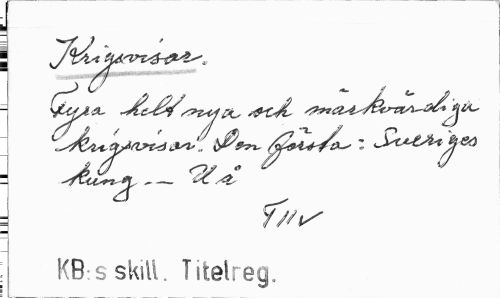 Krigsvisor.
Fyra helt nya och märkvärdiga
krigsvisor. Den första: Sveriges
kung -- U å
T 11 v
KB:s skill. Titelreg.